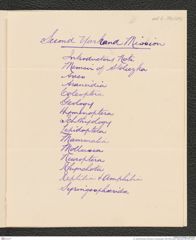 Second Yarkand Mission
Introductory Note
Memoir of Stoliczka
Aves
Araneidea
Coleoptera
Geology
Hymenoptera
Ichthyology
Lepidoptera
Mammalia
Mollusca
Neuroptera
Rhynchota
Reptilia & Amphibia
Syringosphaeridae